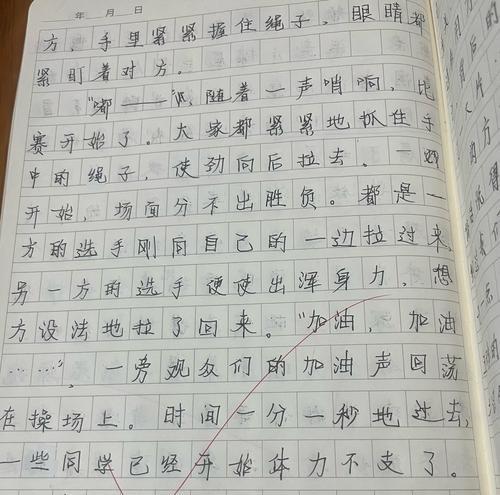 年 月 日
方，手里紧紧握住绳子，眼睛都
紧盯着对方。
"嘟——"，随着一声哨响，比
赛开始了。大家都紧紧地抓住手
中的绳子，使劲向后拉去。一
开始，场面分不出胜负。都是一
方的选手刚向自己的一边拉过来，
另一方的选手便使出浑身力，想
方设法地拉了回来。"加油，加油
……"，一旁观众们的加油声回荡
在操场上。时间一分一秒地过去，
一些同学已经开始体力不支了。